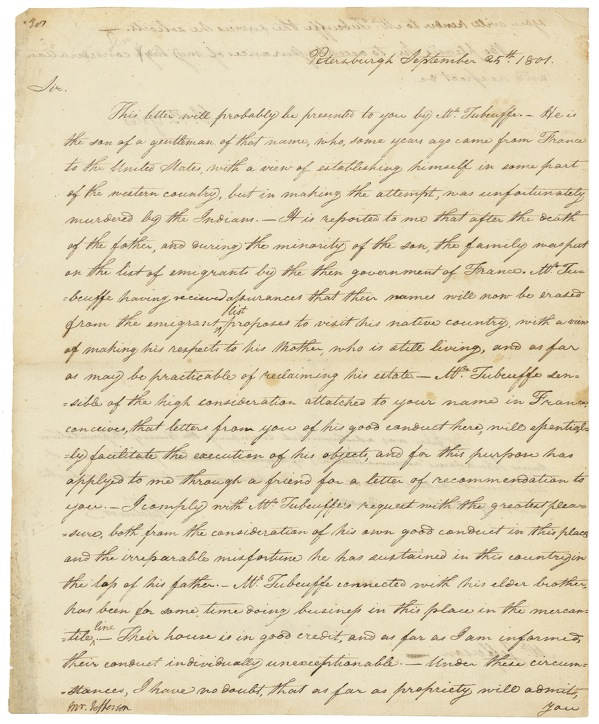 Petersburgh September 25th. 1801.
Sir.
This letter will probably be presented to you by Mr. Tubeuffe. — He is
the son of a gentleman of that name, who, some years ago came from France
to the United States, with a view of establishing himself in some part
of the western country, but in making the attempt, was unfortunately
murdered by the Indians. — It is reported to me that after the death
of the father, and during the minority of the son, the family was put
on the list of emigrants by the then government of France. Mr. Tu-
-beuffe having received assurances that their names will now be erased
from the emigrant list proposes to visit his native country, with a view
of making his respects to his Mother, who is still living, and as far
as may be practicable of reclaiming his estate — Mr. Tubeuffe sen-
-sible of the high consideration attatched to your name in France,
conceives, that letters from you of his good conduct here, will essential-
-ly facilitate the execution of his objects, and for this purpose has
applyed to me through a friend for a letter of recommendation to
you. — I comply with Mr. Tubeuffe's request with the greatest plea-
-sure, both from the consideration of his own good conduct in this place,
and the irreparable misfortune he has sustained in this country, in
the loss of his father. — Mr. Tubeuffe connected with his elder brother,
has been for some time doing business in this place in the mercan-
-tile line — Their house is in good credit, and as far as I am informed,
their conduct individually unexceptionable. — Under these circum-
-stances, I have no doubt, that as far as propriety will admit,
Mr. Jefferson you